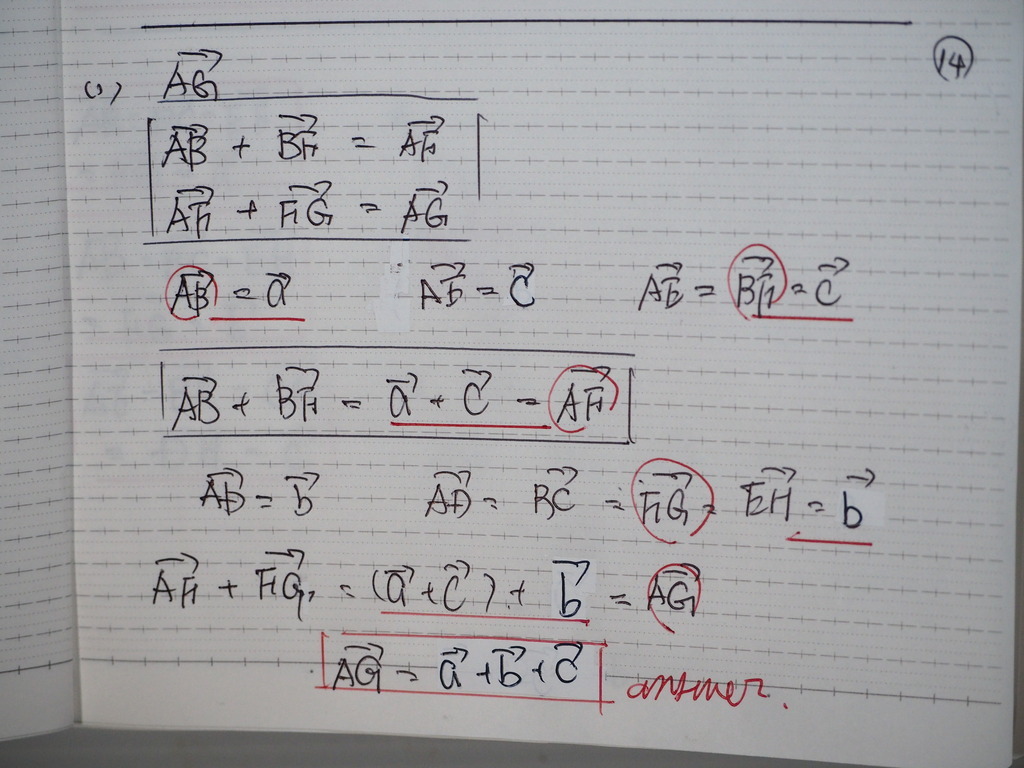 (1) $\overrightarrow{AG}$
14
$\overrightarrow{AB} + \overrightarrow{BF} = \overrightarrow{AF}$
$\overrightarrow{AF} + \overrightarrow{FG} = \overrightarrow{AG}$
$\overrightarrow{AB} = \vec{a}$ $\overrightarrow{AE} = \vec{c}$ $\overrightarrow{AE} = \overrightarrow{BF} = \vec{c}$
$\overrightarrow{AB} + \overrightarrow{BF} = \vec{a} + \vec{c} = \overrightarrow{AF}$
$\overrightarrow{AD} = \vec{b}$ $\overrightarrow{AD} = \overrightarrow{BC} = \overrightarrow{FG} = \overrightarrow{EH} = \vec{b}$
$\overrightarrow{AF} + \overrightarrow{FG} = (\vec{a} + \vec{c}) + \vec{b} = \overrightarrow{AG}$
$\overrightarrow{AG} = \vec{a} + \vec{b} + \vec{c}$ answer.